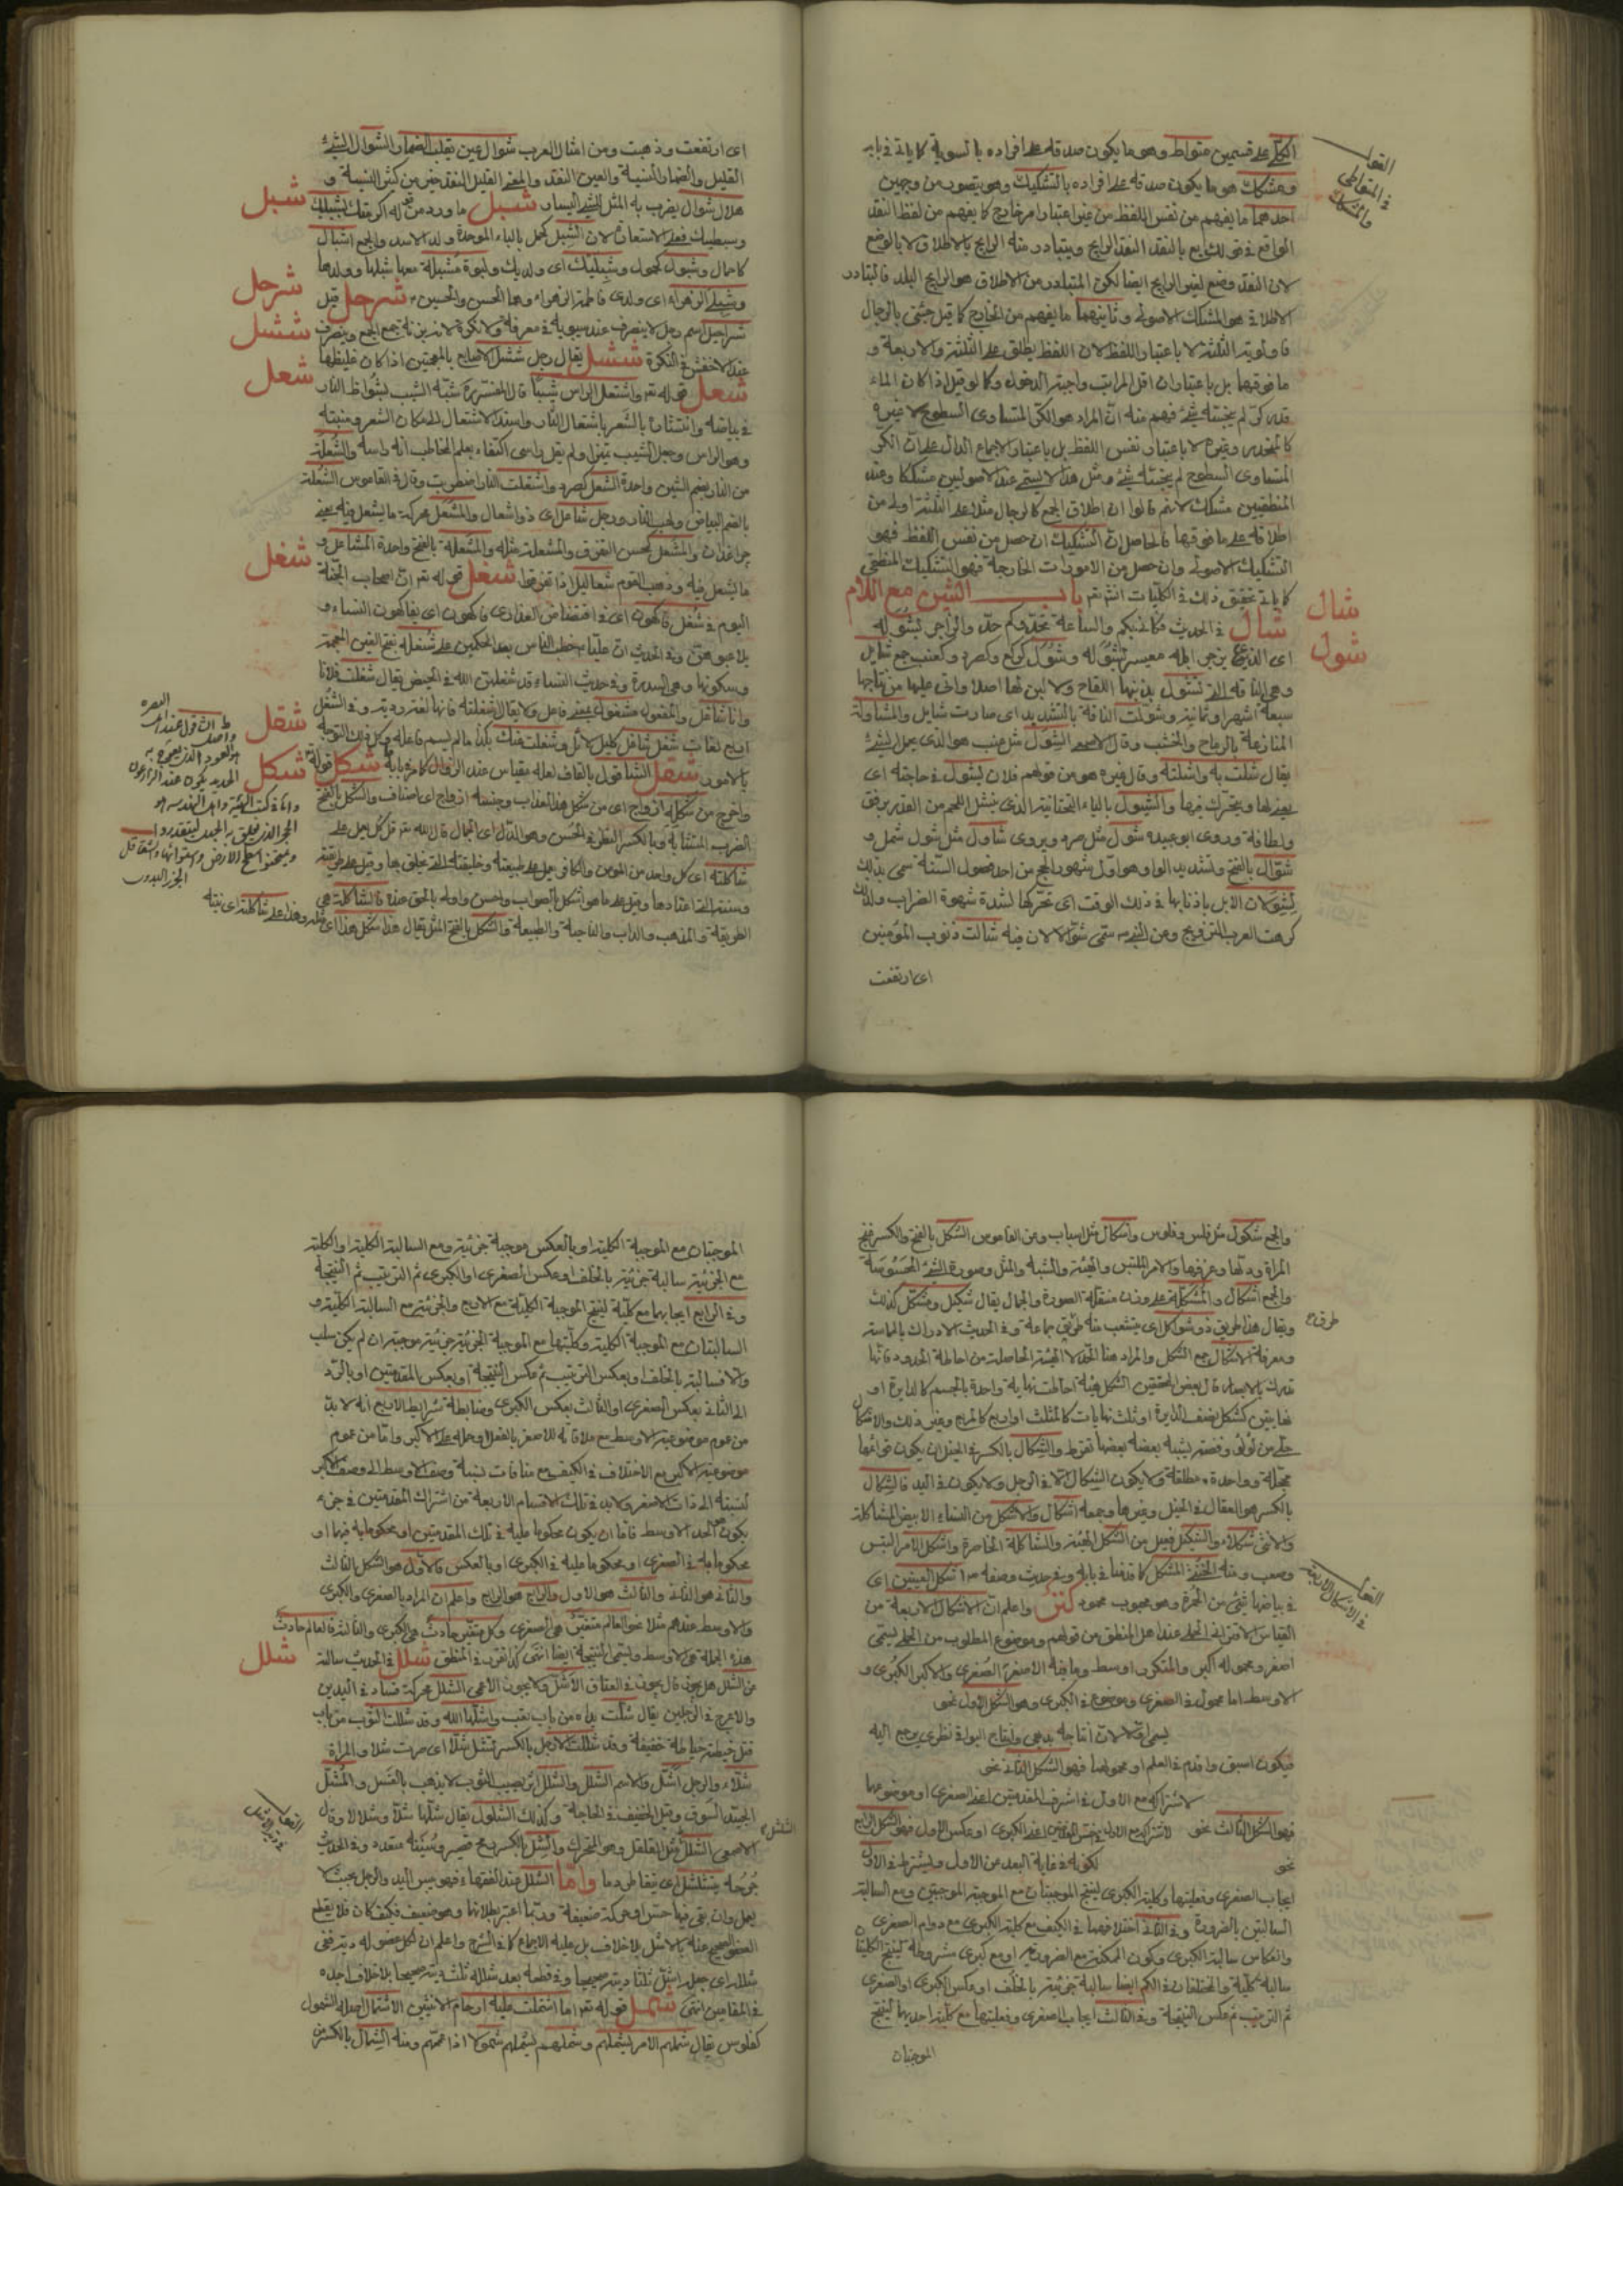 الكلي على قسمين متواط وهو ما يكون صدقه على افراده بالسوية كما ياتي في بابه
ومشكك هو ما يكون صدقه على افراده بالتشكيك وهو يتصور من وجهين
احدهما ما يفهم من نفس اللفظ من غير اعتبار امر خارج كما يفهم من لفظ النقد
الواقع في قولك بع بالنقد النقد الرايج ويتبادر منه الرايج بالاطلاق لا بالوضع
لان النقد وضع لغير الرايج ايضا لكن المتبادر من الاطلاق هو الرايج البلد فالتبادر
الاطلاق هو المشكك الاصولي وثانيهما ما يفهم من الخارج كما قيل جئني بالرجال
فاولوية الثلثة لا باعتبار اللفظ لان اللفظ يطلق على الثلثة والاربعة و
ما فوقها بل باعتبار ان اقل المراتب واجبة الدخول وكما لو قيل اذا كان الماء
قدر كر لم ينجسه شئ فهم منه ان المراد هو الكر المتساوي السطوح لا غيره
كالمنحدر وغيره لا باعتبار نفس اللفظ بل باعتبار الاجماع الدال على ان الكر
المتساوي السطوح لم ينجسه شئ ومثل هذا لا يسمى عند الاصوليين مشككا وعند
المنطقيين مشكك لانهم قالوا ان اطلاق الجمع كالرجال مثلا على الثلثة اولى من
اطلاقه على ما فوقها فالحاصل ان التشكيك ان حصل من نفس اللفظ فهو
التشكيك الاصولي وان حصل من الامورات الخارجة فهو التشكيك المنطقي
كما ياتي تحقيق ذلك في الكليات انشتم باب الشين مع اللام
شال في الحديث فكانيكم والساعة تحدوكم حدو الزاجر بشوله
اي الذي يزجر ابله معيسر لشوله وشول كركع وكصرد وكعنب جمع شايل
وهي الناقة التي تشول بذنبها اللقاح ولا لبن لها اصلا واتى عليها من نتاجها
سبعة اشهر او ثمانية وشولت الناقة بالتشديد اي صارت شايل والمشاولة
المنازعة بالرماح والخشب وقال الاسم الشول مثل عنب هو الذي يحمل لشئ
يقال شلت به واشلته وقال غيره هو من قولهم فلان يشول في حاجته اي
يعنى لها ويتحرك فيها والشيول بالياء التحتانية الذي ينشل اللحم من القدر برفق
ولطافة وروى ابو عبيدة شول مثل صرد ويروى شاول مثل شول شمل و
شوال بالفتح وتشديد الواو هو اول شهور الحج من احد فصول السنة سمي بذلك
لشولان الابل باذنابها في ذلك الوقت اي تحركها لشدة شهوة الضراب ولذلك
كرهت العرب التزويج ومن النبي ص سمي شوالا لان فيه شالت ذنوب المؤمنين
اي ارتفعت
القطا
في المتواطي
والمشكك
شال
شول
اي ارتفعت وذهبت ومن امثال العرب شوال عين يغلب الضمار الشوال الشئ
القليل والضمار النسية والعين النقد والمعنى القليل النقد خير من كثير النسية و
هلال شوال يضرب به المثل للشئ اليسار شبل ما ورد من قوله اكرمتك لشبليك
وسبطيك فعلى الاستعارة لان الشبل كحمل بالباء الموحدة ولد الاسد والجمع اشبال
كاحمال وشبول كحمول وشبليك اي ولديك ولبوة مشبلة معها شبلها وولدها
وشبلي الزهراء اي ولدي فاطمة الزهراء وهما الحسن والحسين شرحل قيل
شراحيل اسم رجل لا ينصرف عند سيبويه في معرفة ولا نكرة لانه بزنة جمع الجمع وينصرف
عند الاخفش في النكرة ششل يقال رجل ششل الاصابع بالمعجمتين اذا كان غليظها
شعل قوله تعـ واشتعل الراس شيبا قال المفسر شبه الشيب بشواظ النار
في بياضه وانتشاره بالشعر باشتعال النار واسند الاشتعال الى مكان الشعر ومنبته
وهو الراس وجعل الشيب تمييزا ولم يقل راسي اكتفاء بعلم المخاطب انه راسه والشعلة
من النار بضم الشين واحدة الشعل كصرد واشتعلت النار اضطربت وقال في القاموس الشعلة
بالضم البياض ولهب النار ورجل شاعل اي ذو اشعال والمشعل محركة ما يشعل فيه
والمشعل كمحسن المتفرق والمشعلة مثله والمشعلة بالفتح واحدة المشاعل و
ما يشعل فيه وذهب القوم شعاليل اذا تفرقوا شغل قوله تعـ ان اصحاب الجنة
اليوم في شغل فاكهون اي في افتضاض العذارى فاكهون اي يفاكهون النساء و
يلاعبوهن وفي الحديث ان عليا ع خطب الناس بعد الحكمين على شغلة بفتح الغين المعجمة
وسكونها وهي البيدرة وفي حديث النساء قد شغلهن الله في الحيض يقال شغلت فلانا
وانا شاغل والمفعول مشغول بمعنى فاعل ولا يقال اشغلته فانها لغة ردية وفي الشغل
اربع لغات شغل شاغل كليل لائل وشغلت عنك بكذا ما لم يسم فاعله وكل ذلك التوجه
بالامور شقل الشاقول بالقاف لعله مقياس عند الزوال كما مر في بابه شكل قوله تعـ
واخر من شكله ازواج اي من شكل هذا العذاب وجنسه ازواج اي اصناف والشكل بالفتح
الضرب المتشابه وبالكسر النظير في الحسن وهو الدل اي الجمال قال الله تعـ قل كل يعمل على
شاكلته اي كل واحد من المومن والكافر يعمل على طبيعته وخليقته التي تخلق بها وقيل على طريقته
وسنته التي اعتادها وقيل على ما هو اشكل بالصواب واحسن واوله بالحق عنده فالشاكلة هي
الطريقة والمذهب والداب والناحية والطبيعة والشكل بالفتح المثل يقال هذا شكل هذا اي
شبل
شرحل
ششل
شعل
شغل
شقل
شكل
والجمع شكول مثل فلس وفلوس واشكال مثل اسباب ومن القاموس الشكل بالفتح والكسر غنج
المراة ودلها وغزلها والامر الملتبس والهيئة والشبه والمثل وصورة الشئ المحسوسة
والجمع اشكال والمشكلة على وزن منقلة الصورة والجمال يقال شكيل ومشكل كذلك
ويقال هذا طريق ذو شواكل اي يتشعب منه طرق جماعة وفي الحديث الادراك بالماسة
ومعرفة الاشكال جمع الشكل والمراد هنا الحد لا الهيئة الحاصلة من احاطة الحدود فانها
تدرك بالابصار قال بعض المحققين الشكل هيئة احاطت نهاية واحدة بالجسم كالدايرة او
نهايتين كشكل نصف الدايرة او ثلث نهايات كالمثلث او اربع كالمربع وغير ذلك والاشكال
حلي من لؤلؤ وفضة يشبه بعضه بعضها تقرط والشكال بالكسر في الخيل ان يكون قوائمها
محجلة وواحدة مطلقة ولا يكون الشكال الا في الرجل ولا يكون في اليد والشكال
بالكسر هو العقال في الخيل وغيرها وجمعه اشكال والاشكل من النساء الابيض الشاكلة
والانثى شكلاء والشكيل فعيل من الشكل الهيئة والشاكلة الخاصرة واشكل الامر التبس
وصعب ومنه الخنثى المشكل كما قدمنا في بابه وفي حديث وصفه ص اشكل العينين اي
في بياضها شئ من الحمرة وهو محبوب محمود كنز واعلم ان الاشكال الاربعة من
القياس الاقتراني الحملي عند اهل المنطق من قولهم وموضوع المطلوب من الحملي يسمى
اصغر ومحموله اكبر والمتكرر اوسط وما فيه الاصغر الصغرى والاكبر الكبرى و
الاوسط اما محمول في الصغرى وموضوع في الكبرى وهو الشكل الاول نحو
يسمى اولا لان انتاجه بديهي وانتاج البواقي نظري يرجع اليه
فيكون اسبق واقدم في العلم او محمولهما فهو الشكل الثاني نحو
لاشتراكه مع الاول في اشرف المقدمتين اعني الصغرى او موضوعهما
فهو الشكل الثالث نحو لاشتراكه مع الاول في اخس المقدمتين اعني الكبرى او عكس الاول فهو الشكل الرابع
نحو لكونه في غاية البعد من الاول ويشترط في الاول
ايجاب الصغرى وفعليتها وكلية الكبرى لينتج الموجبتان مع الموجبة الموجبتين ومع السالبة
السالبتين بالضرورة وفي الثاني اختلافهما في الكيف مع كلية الكبرى مع دوام الصغرى
وانعكاس سالبة الكبرى وكون الممكنة مع الضرورية او مع كبرى مشروطة لينتج الكليتان
سالبة كلية والمختلفان في الكم ايضا سالبة جزئية بالخلف او عكس الكبرى او الصغرى
ثم الترتيب ثم عكس النتيجة وفي الثالث ايجاب الصغرى وفعليتها مع كلية احديهما لينتج
الموجبتان
القطا
في الاشكال الاربعة
الموجبتان مع الموجبة الكلية او بالعكس موجبة جزئية ومع السالبة الكلية او الكلية
مع الجزئية سالبة جزئية بالخلف او عكس الصغرى او الكبرى ثم الترتيب ثم النتيجة
وفي الرابع ايجابهما مع كلية لينتج الموجبة الكلية مع الاربع والجزئية مع السالبة الكلية و
السالبتان مع الموجبة الكلية وكليتها مع الموجبة الجزئية جزئية موجبة ان لم يكن سلب
والا فسالبة بالخلف او بعكس الترتيب ثم عكس النتيجة او بعكس المقدمتين او بالرد
الى الثاني بعكس الصغرى او الثالث بعكس الكبرى وضابطة شرايط الاربع انه لا بد
من عموم موضوعية الاوسط مع ملاقاته للاصغر بالفعل او حمله على الاكبر واما من عموم
موضوعية الاكبر مع الاختلاف في الكيف مع منافات نسبة وصف الاوسط الى وصف الاكبر
لنسبته الى ذات الاصغر ولا بد في تلك الاقسام الاربعة من اشتراك المقدمتين في جزء
يكون هو الحد الاوسط فاما ان يكون محكوما عليه في تلك المقدمتين او محكوما به فيها او
محكوما به في الصغرى او محكوما عليه في الكبرى او بالعكس فالاول هو الشكل الثالث
والثاني هو الثاني والثالث هو الاول والرابع هو الرابع واعلم ان المراد بالصغرى والكبرى
والاوسط عندهم مثلا نحو العالم متغير هي الصغرى وكل متغير حادث هي الكبرى والثالثة فالعالم حادث
هذه الجملة هي الاوسط ويسمى النتيجة ايضا انتهى كذا تقرر في المنطق شلل في الحديث سالته
عن الشلل هل يجوز قال يجوز في العتاق الاشل ولا يجوز الاعمى الشلل محركة فساد في اليدين
والاعرج في الرجلين يقال شلت يداه من باب تعب واشلها الله وقد شللت الثوب من باب
قتل خيطته خياطة خفيفة وقد شللت الرجل بالكسر تشل شللا اي صرت شلا والمراة
شلاء والرجل اشل والاسم الشلل والشلل ان يصيب الثوب لا يذهب بالغسل والمشل
الجيد السوق وقيل الخفيف في الحاجة وكذلك الشلول يقال شلها شلا وشلالا وقال
الاصمعي الشلل مثل القلقل وهو المتحرك
جرحه يتشلشل اي يتقاطر دما واما الشلل عند الفقهاء فهو يبس اليد والرجل بحيث لا
يعمل وان بقي فيها حس او حركة ضعيفة وربما اعتبر بطلانها وهو ضعيف فكيف كان فلا يقطع
العضو الصحيح عنه بالاشل بلا خلاف بل عليه الاجماع كما في الشرح واعلم ان لكل عضو له دية ففي
شلله اي جعله اشل ثلثا ديته صحيحا وفي قطعه بعد شلله ثلث ديته صحيحا بلا خلاف اجده
في المقامين انتهى شمل قوله تعـ اما اشتملت عليه ارحام الانثيين الاشتمال اصله الشمول
كفلوس يقال شملهم الامر يشملهم وشملهم يشملهم شمولا اذا عمهم ومنه الشمال بالكسر
شلل